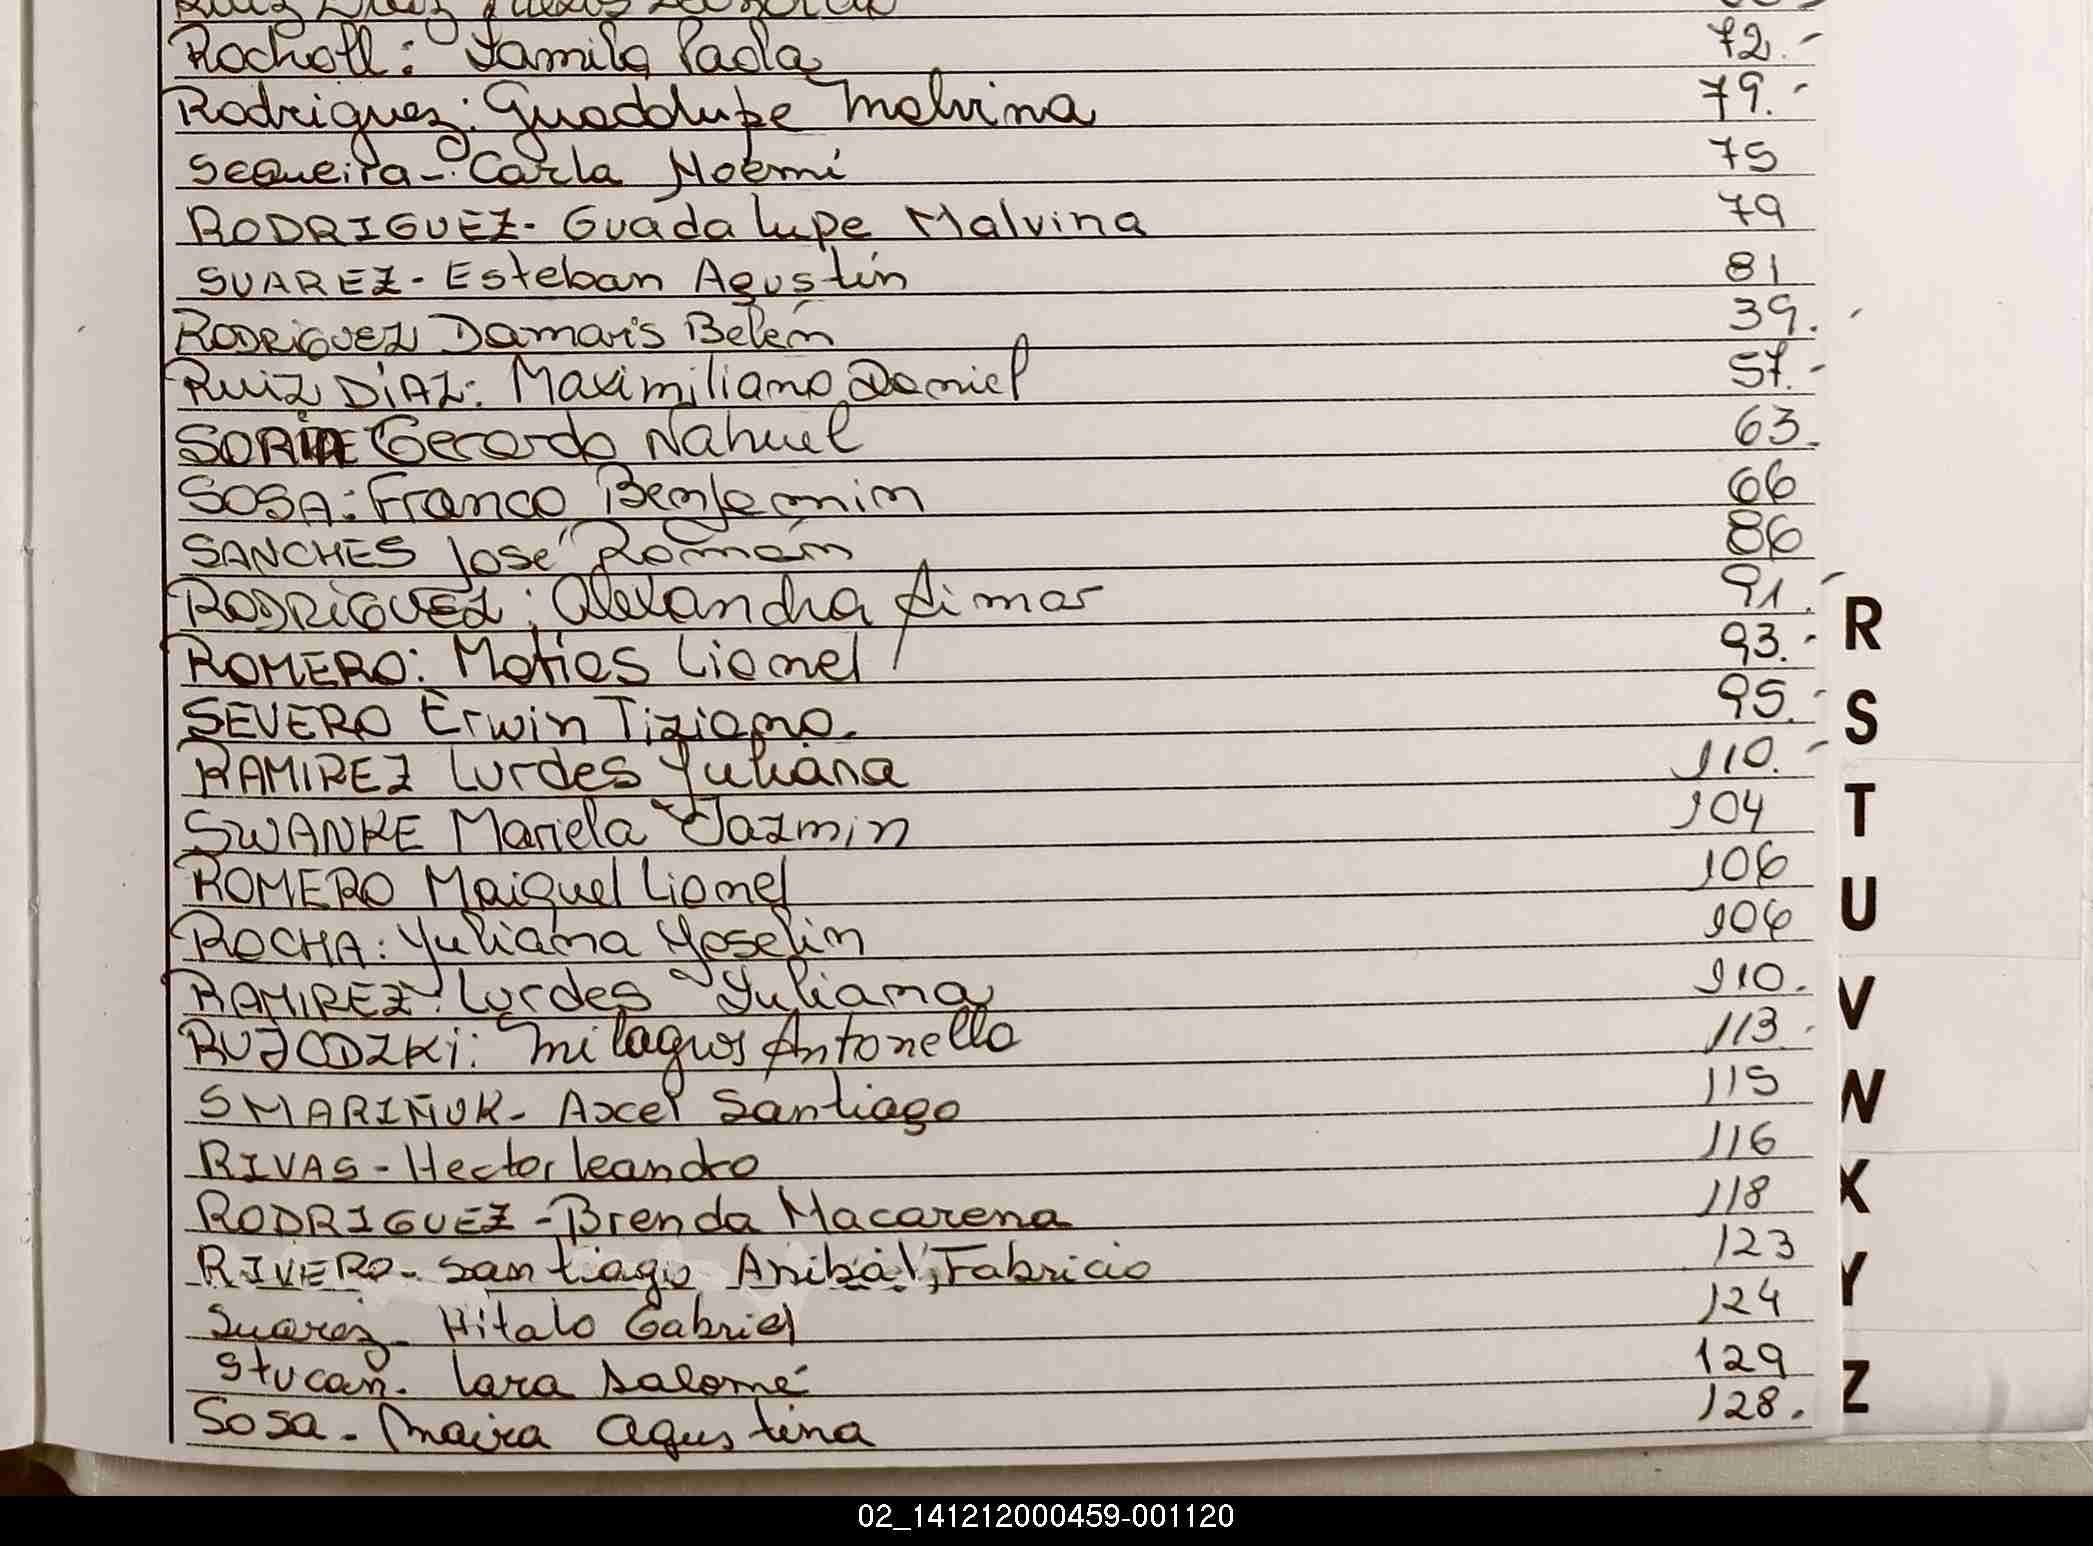 Rocholl: Yamila Paola 72.-
Rodriguez: Guadalupe Malvina 79.-
Sequeira-. Carla Noemí 75
RODRIGUEZ- Guadalupe Malvina 79
SUAREZ- Esteban Agustín 81
RODRIGUEZ Damaris Belén 39.
RUIZ DÍAZ: Maximiliano Daniel 57.-
Gerardo Nahuel 63.
SOSA: Franco Benjamin 66
SANCHES José Román 86
RODRÍGUEZ: Alexandra Aimar 91.
ROMERO: Matias Lionel 93.-
SEVERO Erwin Tiziano. 95.-
RAMIREZ Lurdes Yuliana 110.-
SWANKE Mariela Jazmin 104
ROMERO Maiquel Lionel 106
ROCHA: Yuliana Yoselin 106
RAMIREZ: Lurdes Yuliana 110.
RUJODZKi: Milagros Antonella 113.
SMARIÑUK- Axcel Santiago 115
RIVAS- Hector leandro 116
RODRIGUEZ- Brenda Macarena 118
RIVERO- Santiago Anibal, Fabricio 123
Suarez- Hitalo Gabriel 124
Stucan. Iara Salomé 129
Sosa- Maira Agustina 128.
R
S
T
U
V
W
X
Y
Z
02_141212000459-001120